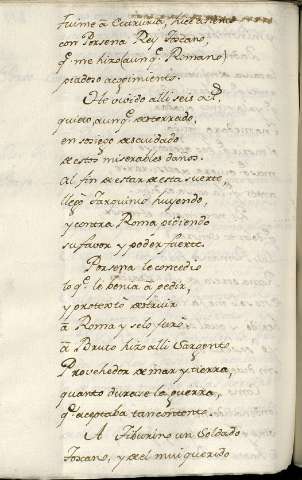 fuime a Etruria,
con Porsena Rey Toscano,
q̃. me hizo (aunq̃. Romano)
acogimiento.
He viuido alli seis as.
quieto aunq̃. desterrado,
en sosiego descuidado
destos miserables daños.
Al fin de estar de esta suerte,
llegó Tarquinio huyendo,
y contra Roma pidiendo
su fabor y poder fuerte.
Porsena le concedio
lo q̃. le benia â pedir,
y protextó destruir
â Roma y selo juró.
â Bruto hizo alli Sargento
Provehedor de mar y tierra,
quanto durase la guerra,
q̃. aceptaba tan contento.
A Tiburino un Soldado
Toscano, y del mui querido